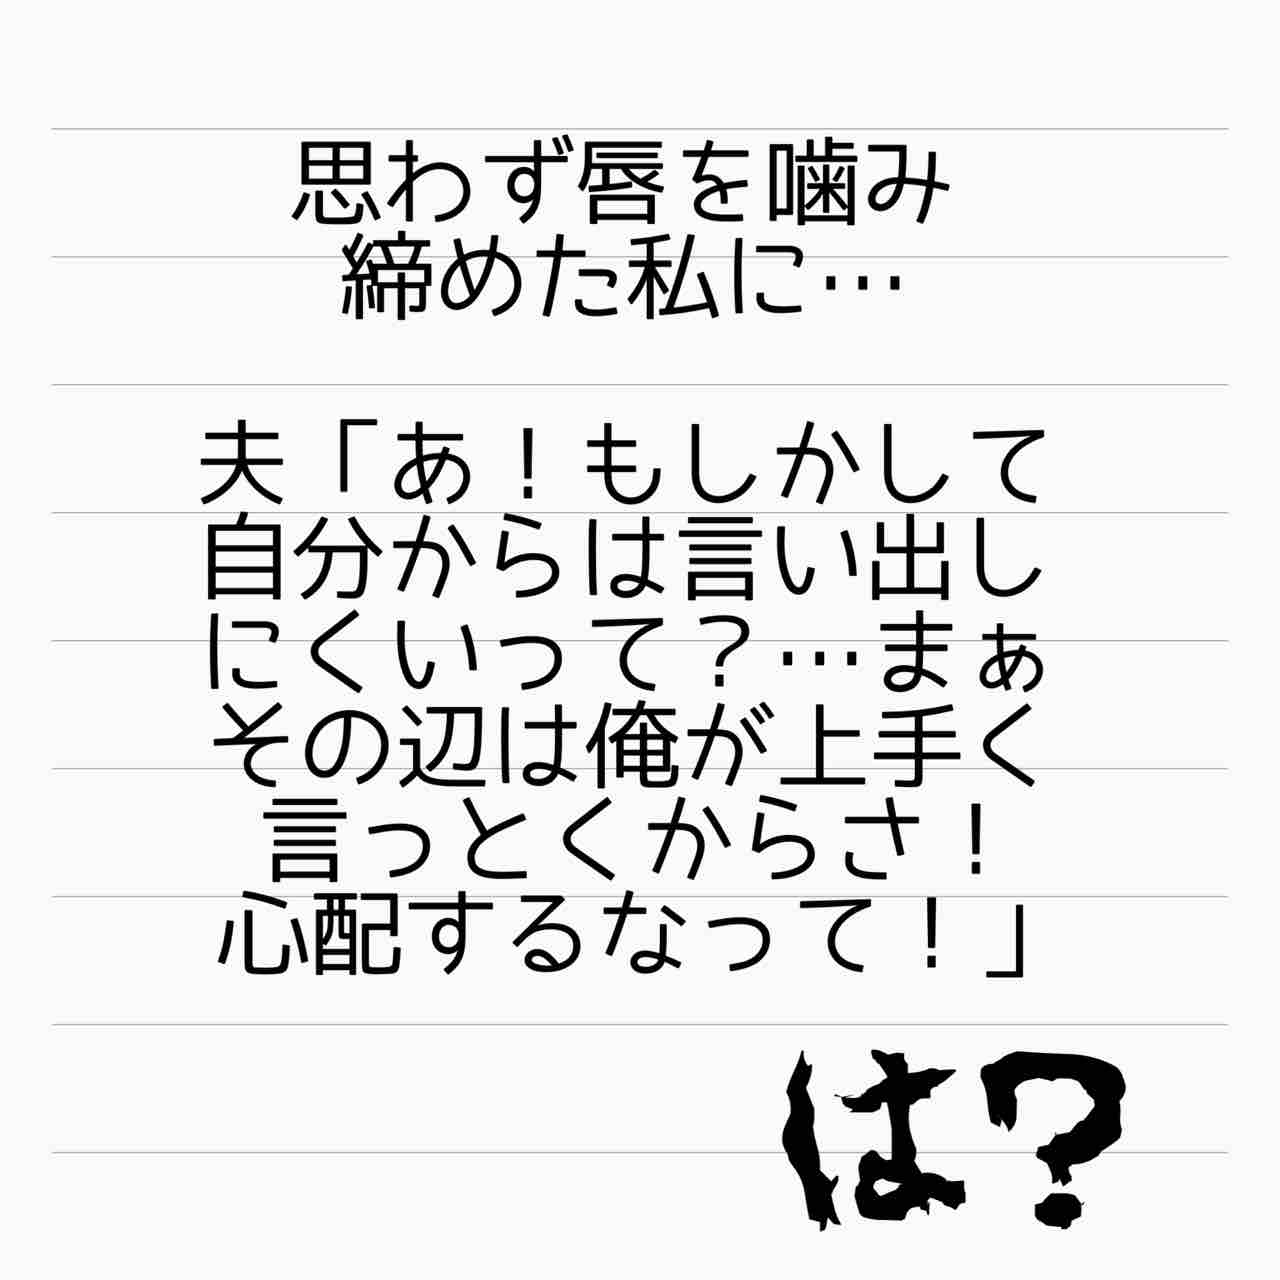 思わず唇を噛み
締めた私に…
夫「あ！もしかして
自分からは言い出し
にくいって？…まぁ
その辺は俺が上手く
言っとくからさ！
心配するなって！」
は？